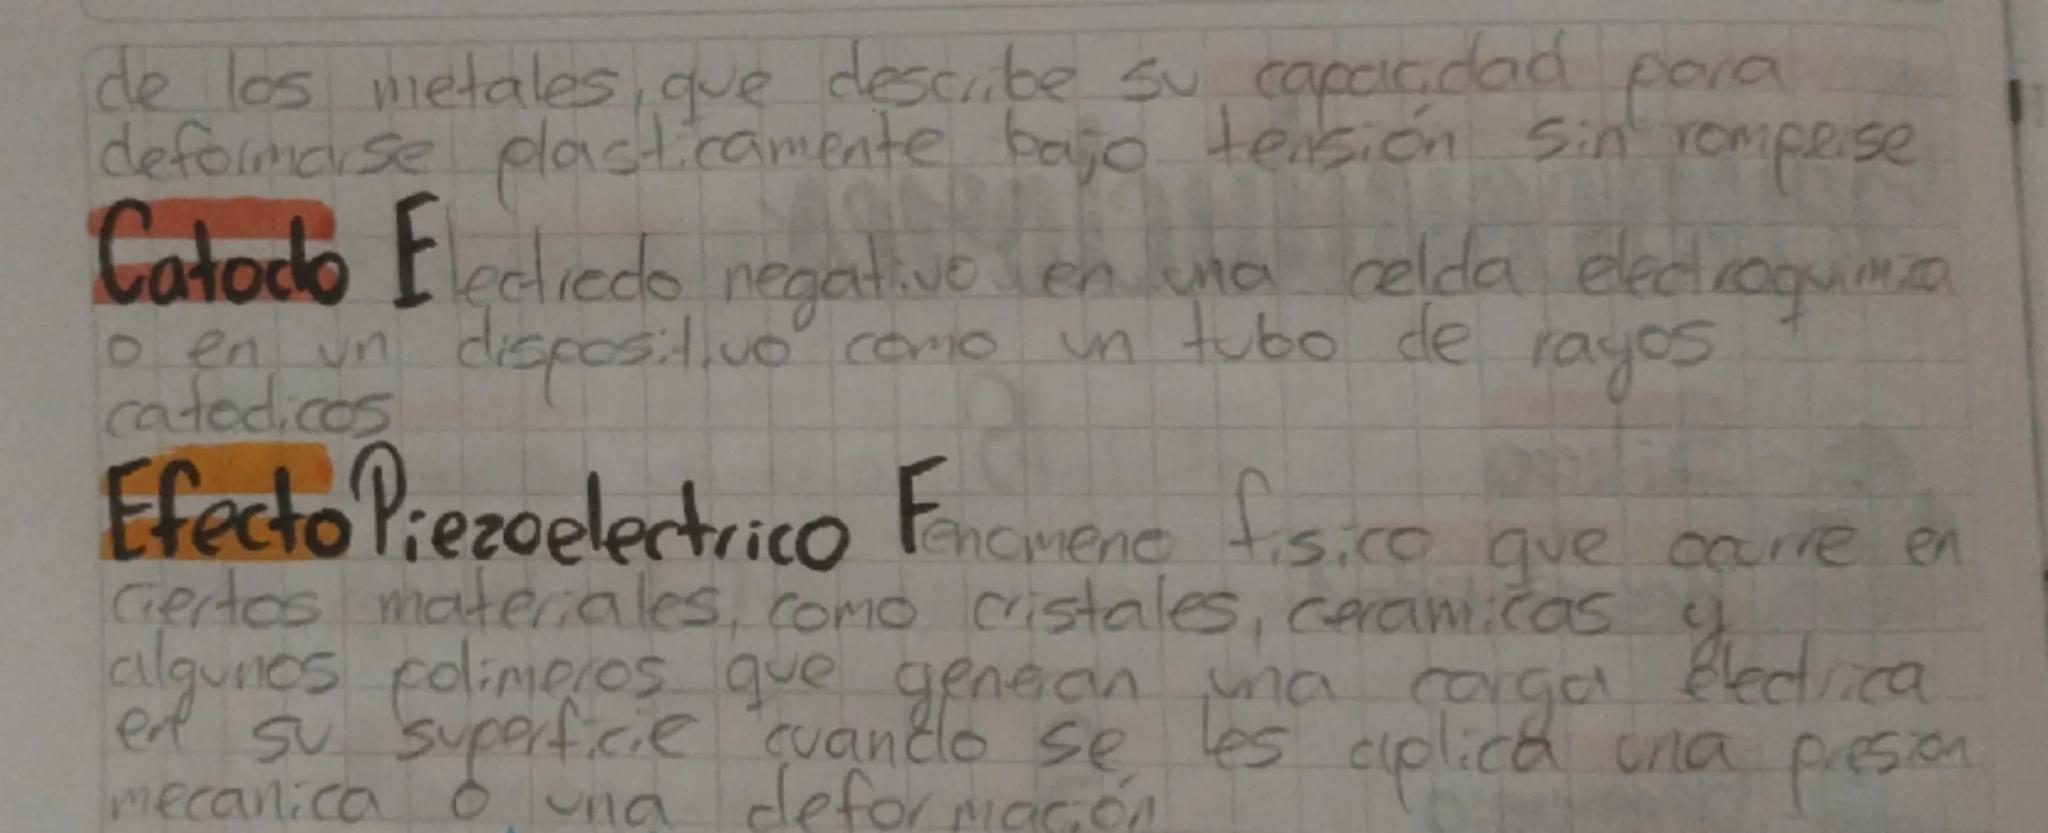 de los metales, que describe su capacidad para
deformarse plasticamente bajo tensión sin romperse
Catodo Electrodo negativo en una celda electroquimica
o en un dispositivo como un tubo de rayos
catodicos
Efecto Piezoelectrico Fenomeno fisico que ocurre en
ciertos materiales, como cristales, ceramicas y
algunos polimeros que generan una carga electrica
en su superficie cuando se les aplica una presion
mecanica o una deformación